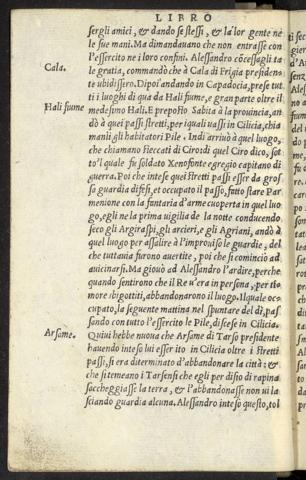 LIBRO
sergli amici, & dando se stessi, & la lor gente nel
le sue mani. Ma dimandauano che non entrasse con
l'essercito ne i loro confini. Alessandro cõcessagli ta
Cala.
le gratia, commandò che à Cala di Frigia presiden
te ubidissero. Dipoi andando in Capadocia, prese tut
ti i luoghi di qua da Hali fiume, e gran parte oltre il
Hali fiume
medesimo Hali. E preposto Sabita à la prouincia, an
dò à quei passi stretti, per iquali uassi in Cilicia, chia
manli gli habitatori Pile. Indi arriuò à quel luogo,
che chiamano steccati di Ciro: di quel Ciro dico, sot
to'l quale fu soldato Xenofonte egregio capitano di
guerra. Poi che intese quei stretti passi esser da gros
sa guardia difesi, et occupato il passo, fatto stare Par
menione con la fantaria d'arme cuoperta in quel luo
go, egli ne la prima uigilia de la notte conducendo
seco gli Argiraspi, gli arcieri, e gli Agriani, andò à
quel luogo per assalire à l'improuiso le guardie, del
che tuttauia furono auertite, poi che si comincio ad
auicinarsi. Ma giouò ad Alessandro l'ardire, perche
quando sentirono che il Re u'era in persona, per ti=
more sbigottiti, abbandonarono il luogo. Il quale oc=
cupato, la seguente mattina nel spuntare del dì, pas
sando con tutto l'essercito le Pile, disfese in Cilicia.
Arsame.
Quiui hebbe nuoua che Arsame di Tarso presidente
hauendo inteso lui esser ito in Cilicia oltre i stretti
passi, si era diterminato d'abbandonare la città: &
che si temeano i Tarsensi che egli per disio di rapina
saccheggiasse la terra, & l'abbandonasse non ui la
sciando guardia alcuna. Alessandro inteso questo, tol